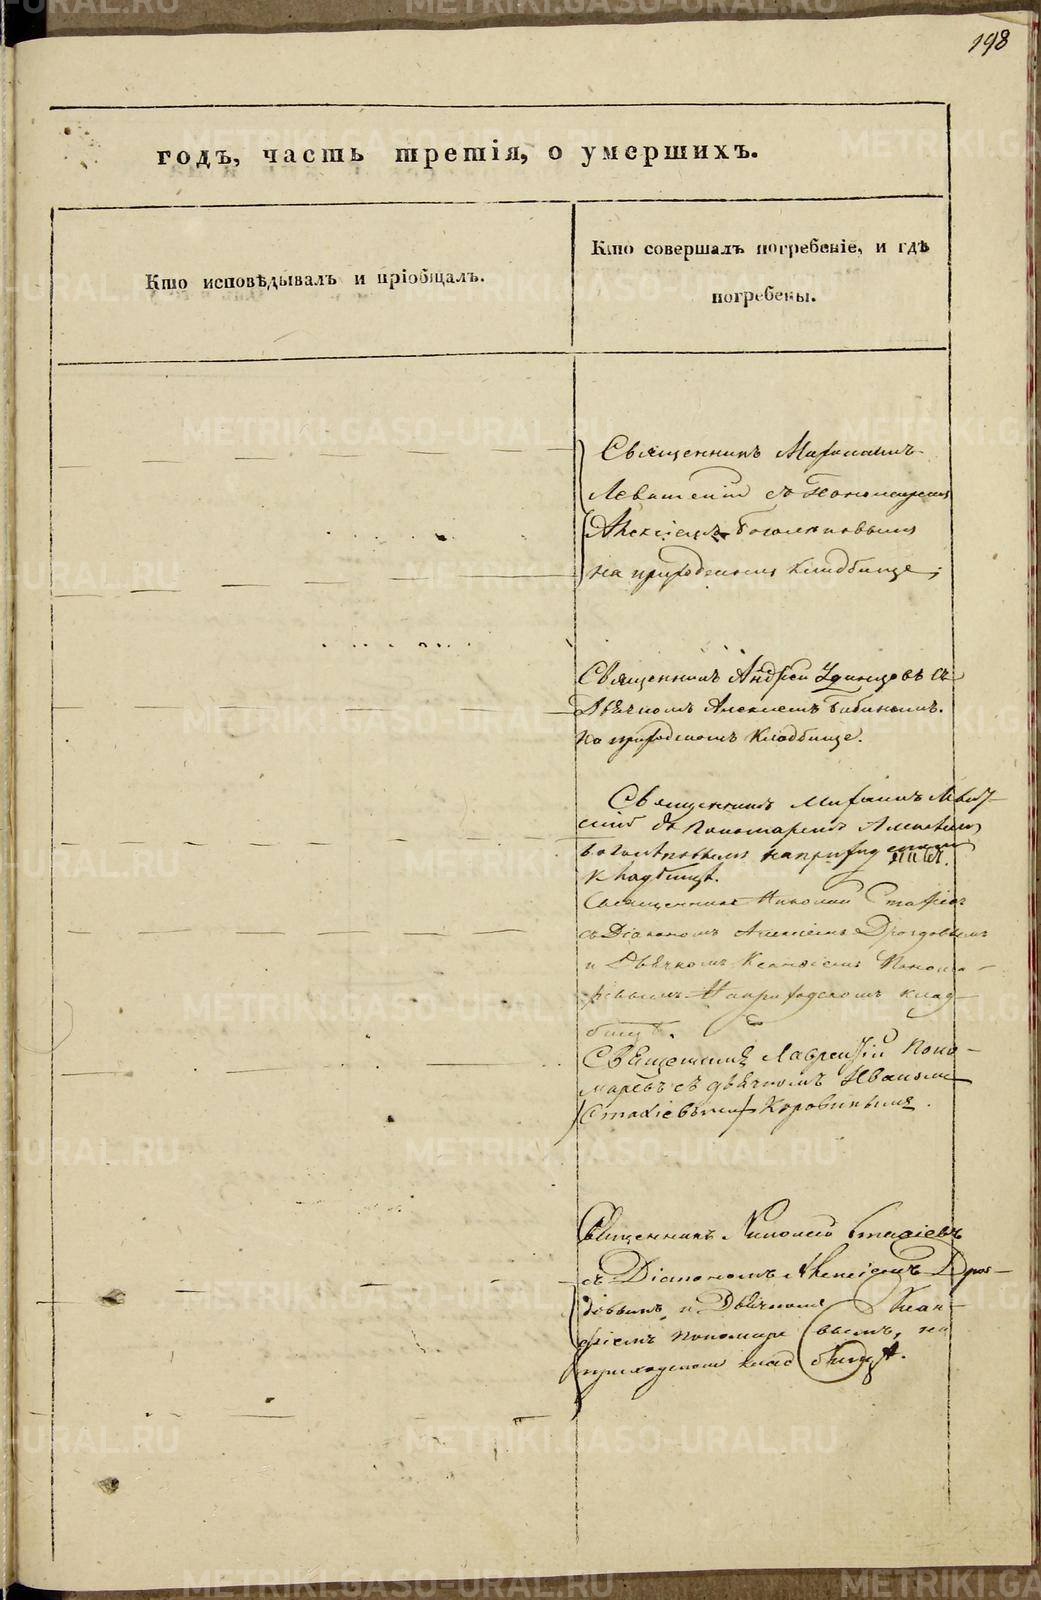 198
годъ, часть третія, о умершихъ.
Кто исповѣдывалъ и пріобщалъ.
Кто совершалъ погребеніе, и гдѣ
погребены.
Священникъ
съ Пономаремъ
Алексіемъ
на приходскомъ кладбище;
Священникъ Андрей Удинцовъ съ
Дьячкомъ Алексіемъ Бабинымъ.
На приходскомъ кладбище.
Священникъ
Пономаремъ
на приходскомъ
кладбищѣ.
Священникъ Николай Стахіевъ
съ Діакономъ Алексіемъ Дроздовымъ
и Дьячкомъ Понома-
ревымъ На приходскомъ клад-
бищѣ.
Священникъ Лаврентій Поно-
маревъ съ дьячкомъ Иваномъ
Стахіевымъ Коровинымъ.
Священникъ Николай Стахіевъ
съ Діакономъ Алексіемъ Дроз-
довымъ и Дьячкомъ
Пономаревымъ, на
приходскомъ кладбищѣ.
METRIKI.GASO-URAL.RU